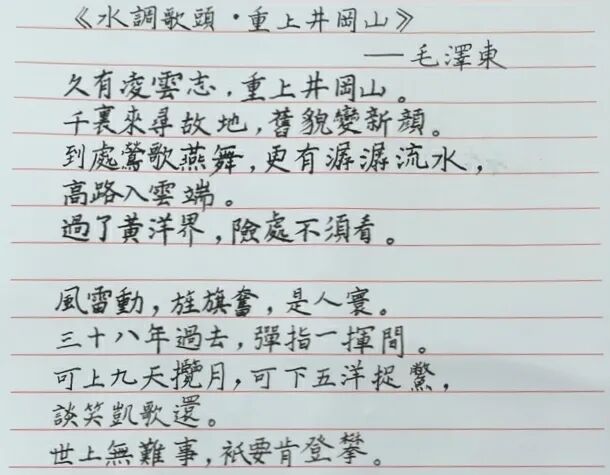 《水調歌頭·重上井岡山》
——毛澤東
久有凌雲志，重上井岡山。
千裏來尋故地，舊貌變新顏。
到處鶯歌燕舞，更有潺潺流水，
高路入雲端。
過了黃洋界，險處不須看。
風雷動，旌旗奮，是人寰。
三十八年過去，彈指一揮間。
可上九天攬月，可下五洋捉鱉，
談笑凱歌還。
世上無難事，衹要肯登攀。